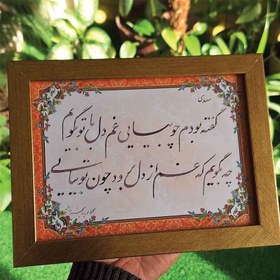 سعدی
گفته بودم چو بیایی غم دل با تو بگویم
چه بگویم که غم از دل برود چون تو بیایی